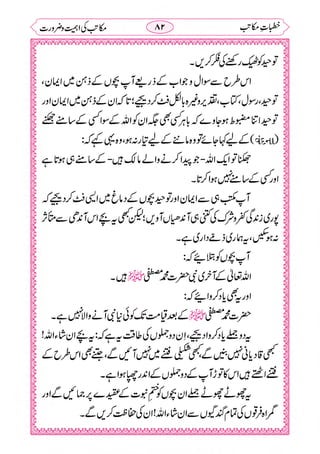 خطباتِ مکاتب ۸۲ مکاتب کی اہمیت وضرورت
توحید کو ٹھیک رکھنے کی فکر کریں۔
اس طرح سے سوال وجواب کے ذریعے آپ بچوں کے ذہن میں ایمان،
توحید، رسول، کتاب، تقدیر وغیرہ بالکل فٹ کر دیجیے؛ تا کہ ان کے ذہن میں ایمان اور
توحید اتنا مضبوط ہو جاوے کہ باہر کسی بھی جگہ ان کو اللہ کے سوا کسی کے سامنے جھکنے
کے لیے کہا جائے تو وہ ماننے کے لیے تیار نہ ہو، وہ یہی کہے کہ:
انگھنا تو ایک اللہ - جو پیدا کرنے والے مالک ہیں - کے سامنے ہی ہوتا ہے
اور کسی کے سامنے نہیں ہوا کرتا۔
آپ مکتب ہی سے ایمان اور توحید بچوں کے دماغ میں ایسی فٹ کر دیجیے کہ
پوری زندگی کفر وشرک کی کتنی ہی آندھیاں آویں؛ لیکن کبھی یہ بچے اس سے متأثر
نہ ہو سکیں، یہ ہماری ذمے داری ہے۔
آپ بچوں کو بتلائیے کہ:
اللہ تعالیٰ کے آخری نبی حضرت محمد مصطفیٰ ﷺ ہیں۔
اور یہ بھی یاد کروائیے کہ:
حضرت محمد مصطفیٰ ﷺ کے بعد قیامت تک کوئی نیا نبی آنے والا نہیں ہے۔
یہ دو جملے یاد کروا دیجیے، ان دو جملوں میں وہ طاقت ہے کہ: یہ بچے ان شاء اللہ!
کبھی قادیانی نہیں بنیں گے، کبھی شکیلی فتنے میں نہیں آئیں گے، جتنے بھی اس طرح کے
فتنے اٹھتے ہیں اس کا توڑ آپ کے دو جملوں کے اندر اچھا ہوا ہے۔
یہ چھوٹے چھوٹے جملے ان بچوں کو ختمِ نبوت کے عقیدے پر جمائیں گے اور
گمراہ فرقوں کی تمام گندگیوں سے ان شاء اللہ! ان کی حفاظت کریں گے۔